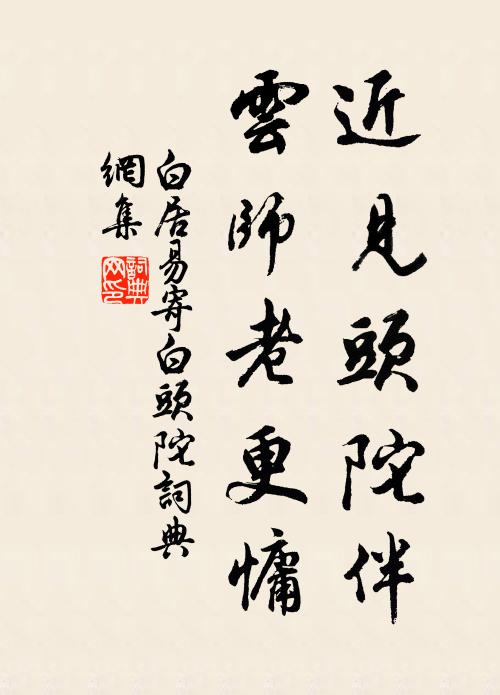 近見頭陀伴
雲師老更慵
白居易寄白頭陀詞典
網集
詞典網印